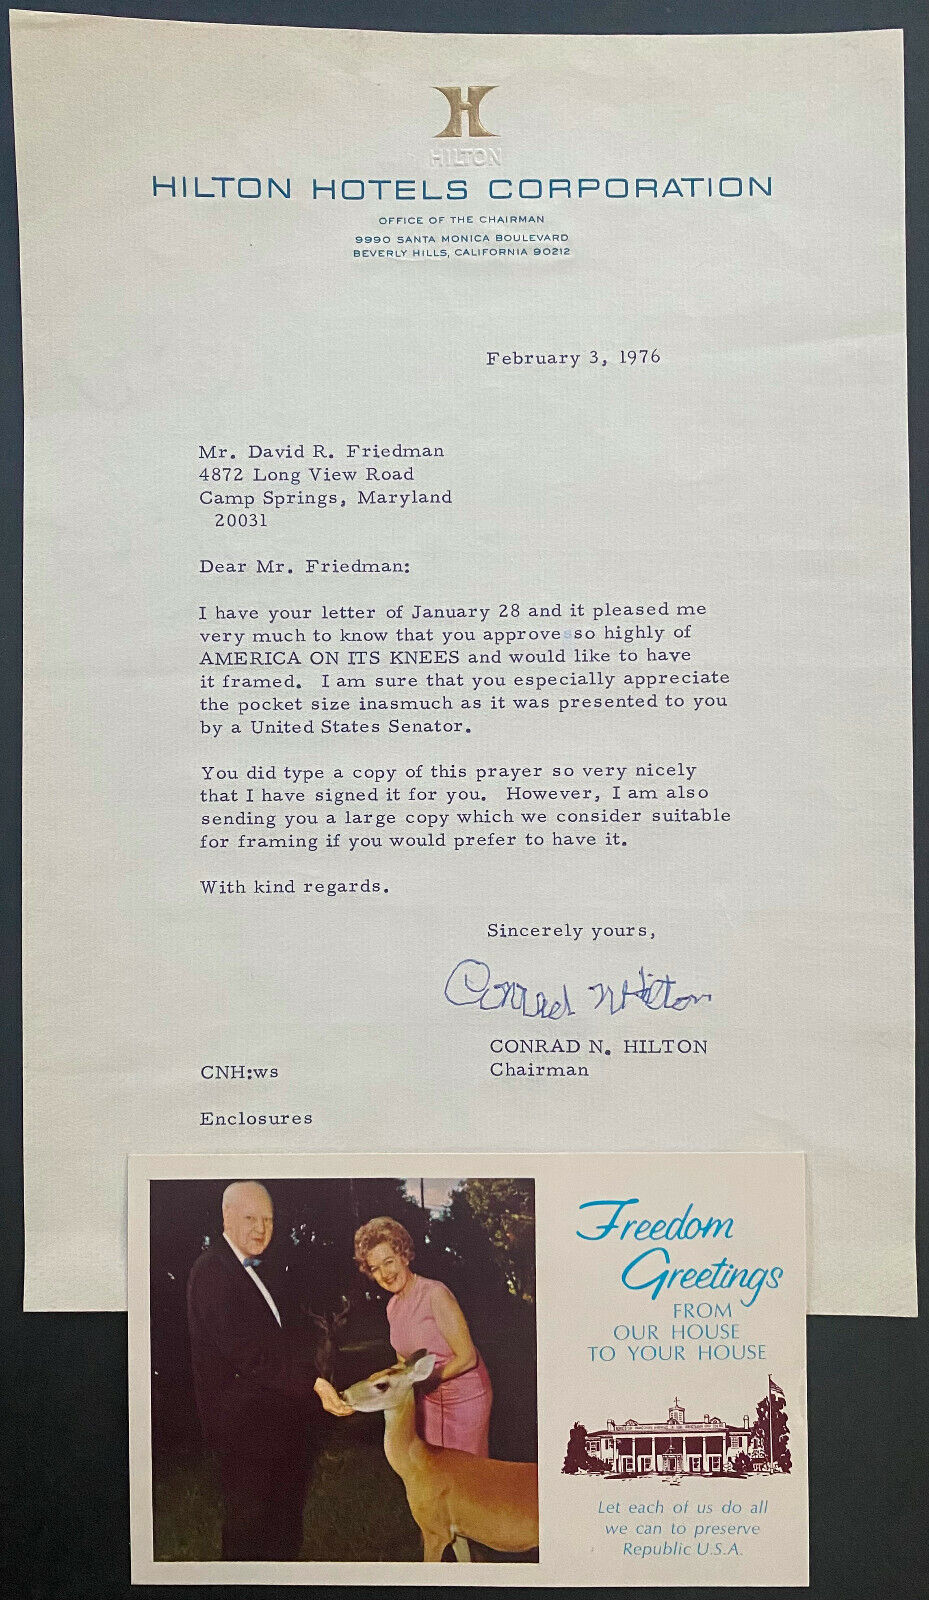 H
HILTON
HILTON HOTELS CORPORATION
OFFICE OF THE CHAIRMAN
9990 SANTA MONICA BOULEVARD
BEVERLY HILLS, CALIFORNIA 90212
February 3, 1976
Mr. David R. Friedman
4872 Long View Road
Camp Springs, Maryland
20031
Dear Mr. Friedman:
I have your letter of January 28 and it pleased me
very much to know that you approve so highly of
AMERICA ON ITS KNEES and would like to have
it framed. I am sure that you especially appreciate
the pocket size inasmuch as it was presented to you
by a United States Senator.
You did type a copy of this prayer so very nicely
that I have signed it for you. However, I am also
sending you a large copy which we consider suitable
for framing if you would prefer to have it.
With kind regards.
Sincerely yours,
Conrad N Hilton
CONRAD N. HILTON
Chairman
CNH:ws
Enclosures
Freedom
Greetings
FROM
OUR HOUSE
TO YOUR HOUSE
Let each of us do all
we can to preserve
Republic U.S.A.